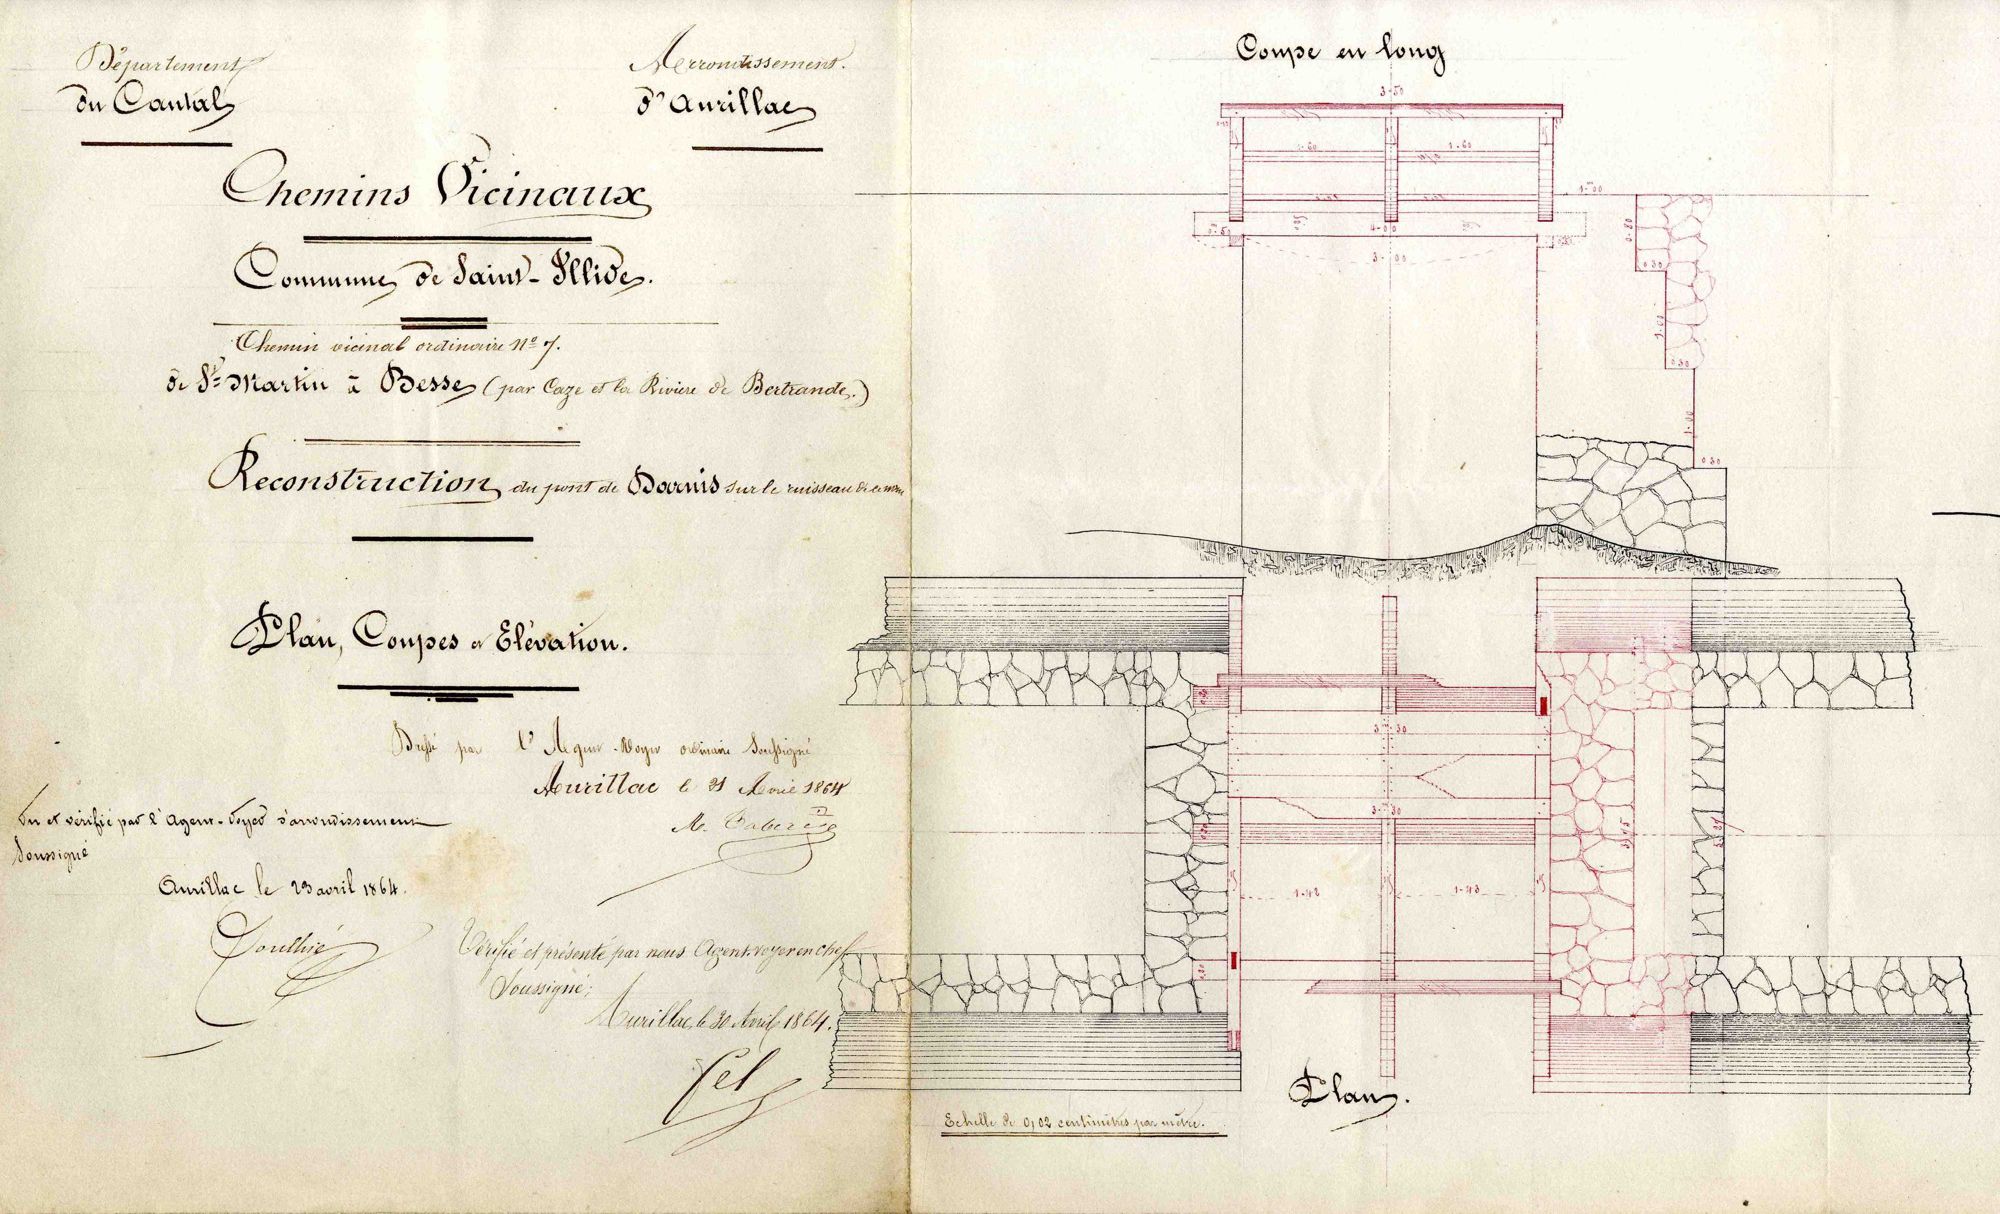 Département
du Cantal
Arrondissement.
d'Aurillac
Chemins Vicinaux
Commune de Saint-Illide.
Chemin vicinal ordinaire N° 7.
de St Martin à Besse (par Caze et la Rivière de Bertrande.)
Reconstruction du pont de Darnis sur le ruisseau de
Plan, Coupes et Elévation.
Dressé par l'Agent-Voyer ordinaire Soussigné
Aurillac le 21 Avril 1864
Vu et vérifié par l'Agent-Voyer d'arrondissement
Soussigné
Aurillac le 23 avril 1864.
Vérifié et présenté par nous Agent-voyer en chef
Soussigné;
Aurillac, le 30 Avril 1864.
Coupe en long
3-50
1-60
1-60
1m00
4-00
3-00
0.80
0.30
1-00
0.30
1-00
0.30
3m-30
3-30
1-42
1-43
Plan.
Echelle de 0,02 centimètres par mètre.